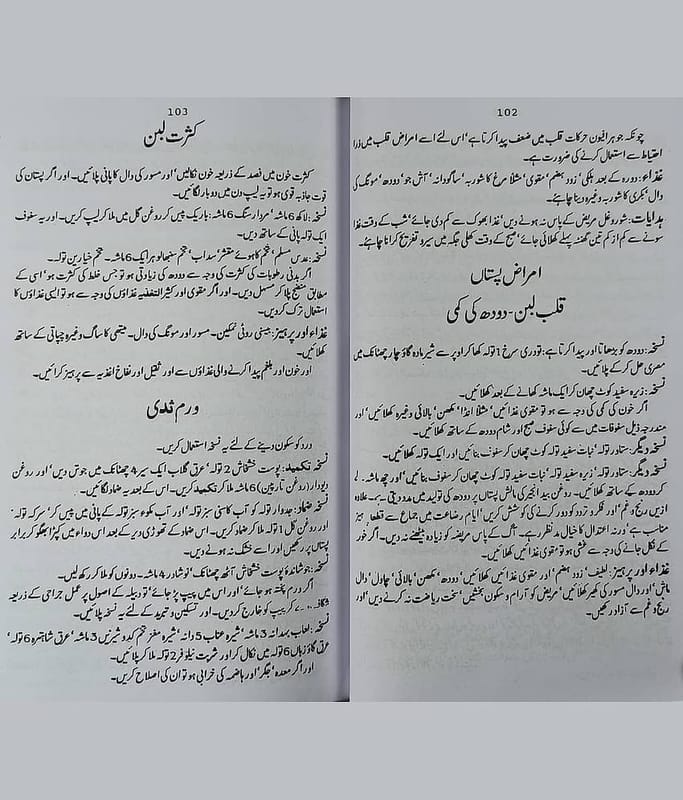 102
چونکہ جوہر افیون حرکات قلب میں ضعف پیدا کرتا ہے‘ اس لئے اسے امراض قلب میں ذرا
احتیاط سے استعمال کرنے کی ضرورت ہے۔
غذاء: دورہ کے بعد ہلکی‘ زود ہضم‘ مقوی‘ مثلاً مرغ کا شوربہ‘ ساگودانہ‘ آش جو‘ دودھ‘ مونگ کی
دال‘ بکری کا شوربہ وغیرہ دینا چاہئے۔
ہدایات: شوروغل مریض کے پاس نہ ہونے دیں‘ غذا بھوک سے کم دی جائے‘ شب کے وقت غذا
سونے سے کم از کم تین گھنٹہ پہلے کھلائی جائے‘ صبح کے وقت کھلی جگہ میں سیر و تفریح کرانا چاہئے۔
امراض پستان
قلب لبن - دودھ کی کمی
نسخہ: دودھ کو بڑھاتا اور پیدا کرتا ہے: تودری سرخ 1 تولہ کھا کر اوپر سے شیر مادہ گاؤ چار چھٹانک میں
مصری حل کر کے پلائیں۔
نسخہ: زیرہ سفید کوٹ چھان کر ایک ماشہ کھانے کے بعد کھلائیں۔
اگر خون کی کمی کی وجہ سے ہو تو مقوی غذائیں‘ مثلاً انڈا‘ مکھن‘ بالائی وغیرہ کھلائیں‘ اور
مندرجہ ذیل سفوفات میں سے کوئی سفوف صبح اور شام دودھ کے ساتھ کھلائیں۔
نسخہ دیگر: ستاور تولہ‘ نبات سفید تولہ کوٹ چھان کر سفوف بنائیں اور ایک تولہ کھلائیں۔
نسخہ دیگر: ستاور تولہ‘ زیرہ سفید تولہ‘ نبات سفید تولہ کوٹ چھان کر سفوف بنائیں‘ اور چھ ماشہ لے
کر دودھ کے ساتھ کھلائیں۔ روغن بید انجیر کی مالش پستان پر دودھ کی تولید میں مدد دیتی ہے۔ علاوہ
ازیں رنج و غم‘ اور فکر و تردد کو دور کرنے کی کوشش کریں‘ ایام رضاعت میں جماع سے قطعاً پرہیز
مناسب ہے‘ ورنہ اعتدال کا خیال مدنظر رہے۔ آگ کے پاس مریضہ کو زیادہ بیٹھنے نہ دیں۔ اگر خون
کے نکل جانے کی وجہ سے غشی ہو تو مقوی غذائیں کھلائیں۔
غذاء اور پرہیز: لطیف‘ زود ہضم‘ اور مقوی غذائیں کھلائیں‘ دودھ‘ مکھن‘ بالائی‘ چاول‘ دال
ماش‘ اور دال مسور کی کھیر کھلائیں‘ مریض کو آرام و سکون بخشیں‘ سخت ریاضت نہ کرنے دیں‘ اور
رنج و غم سے آزاد رکھیں۔
103
کثرت لبن
کثرت خون میں فصد کے ذریعہ خون نکالیں‘ اور مسور کی دال کا پانی پلائیں۔ اور اگر پستان کی
قوت جاذبہ قوی ہو تو یہ لیپ دن میں دو بار لگائیں۔
نسخہ: لاکھ 6 ماشہ‘ مردار سنگ 6 ماشہ: باریک پیس کر روغن گل میں ملا کر لیپ کریں۔ اور یہ سفوف
ایک تولہ پانی کے ساتھ دیں۔
نسخہ: عدس مسلم‘ تخم کاہوئے مقشر‘ سداب‘ تخم سنبھالو ہر ایک 6 ماشہ۔ تخم خیارین تولہ۔
اگر بدنی رطوبات کی کثرت کی وجہ سے دودھ کی زیادتی ہو تو جس خلط کی کثرت ہو‘ اسی کے
مطابق منضج پلا کر مسہل دیں۔ اور اگر مقوی اور کثیر التغذیہ غذاؤں کی وجہ سے ہو تو ایسی غذاؤں کا
استعمال ترک کر دیں۔
غذاء اور پرہیز: بیسنی روٹی نمکین۔ مسور اور مونگ کی دال۔ میتھی کا ساگ وغیرہ چپاتی کے ساتھ
کھلائیں۔
اور خون اور بلغم پیدا کرنے والی غذاؤں سے اور ثقیل اور نفاخ اغذیہ سے پرہیز کرائیں۔
ورم ثدی
درد کو سکون دینے کے لئے یہ نسخہ استعمال کریں۔
نسخہ تکمید: پوست خشخاش 2 تولہ‘ عرق گلاب ایک سیر 4 چھٹانک میں جوش دیں‘ اور روغن
دیودار (روغن تارپین) 6 ماشہ ملا کر تکمید کریں۔ اس کے بعد یہ ضماد لگائیں۔
نسخہ ضماد: جدوار تولہ کو آب کاسنی سبز تولہ‘ اور آب مکوہ سبز تولہ کے پانی میں پیس کر‘ سرکہ تولہ‘
اور روغن گل 1 تولہ ملا کر ضماد کریں۔ اس ضماد کے تھوڑی دیر کے بعد اس دواء میں کپڑا بھگو کر برابر
پستان پر رکھیں اور اسے خشک نہ ہونے دیں۔
نسخہ: جوشاندہ پوست خشخاش آٹھ چھٹانک‘ نوشادر 4 ماشہ۔ دونوں کو ملا کر رکھ لیں۔
اگر ورم پختہ ہو جائے‘ اور اس میں پیپ پڑ جائے‘ تو دبیلہ کے اصول پر عمل جراحی کے ذریعہ
شگاف دے کر پیپ کو خارج کر دیں۔ اور تسکین و تبرید کے لئے یہ نسخہ پلائیں۔
نسخہ: لعاب بہدانہ 3 ماشہ‘ شیرہ عناب 5 دانہ‘ شیرہ مغز تخم کدو شیریں 3 ماشہ‘ عرق شاہترہ 6 تولہ‘
عرق گاؤ زباں 6 تولہ میں نکال کر اور شربت نیلوفر 2 تولہ ملا کر پلائیں۔
اور اگر معدہ‘ جگر‘ اور ہاضمہ کی خرابی ہو تو ان کی اصلاح کریں۔